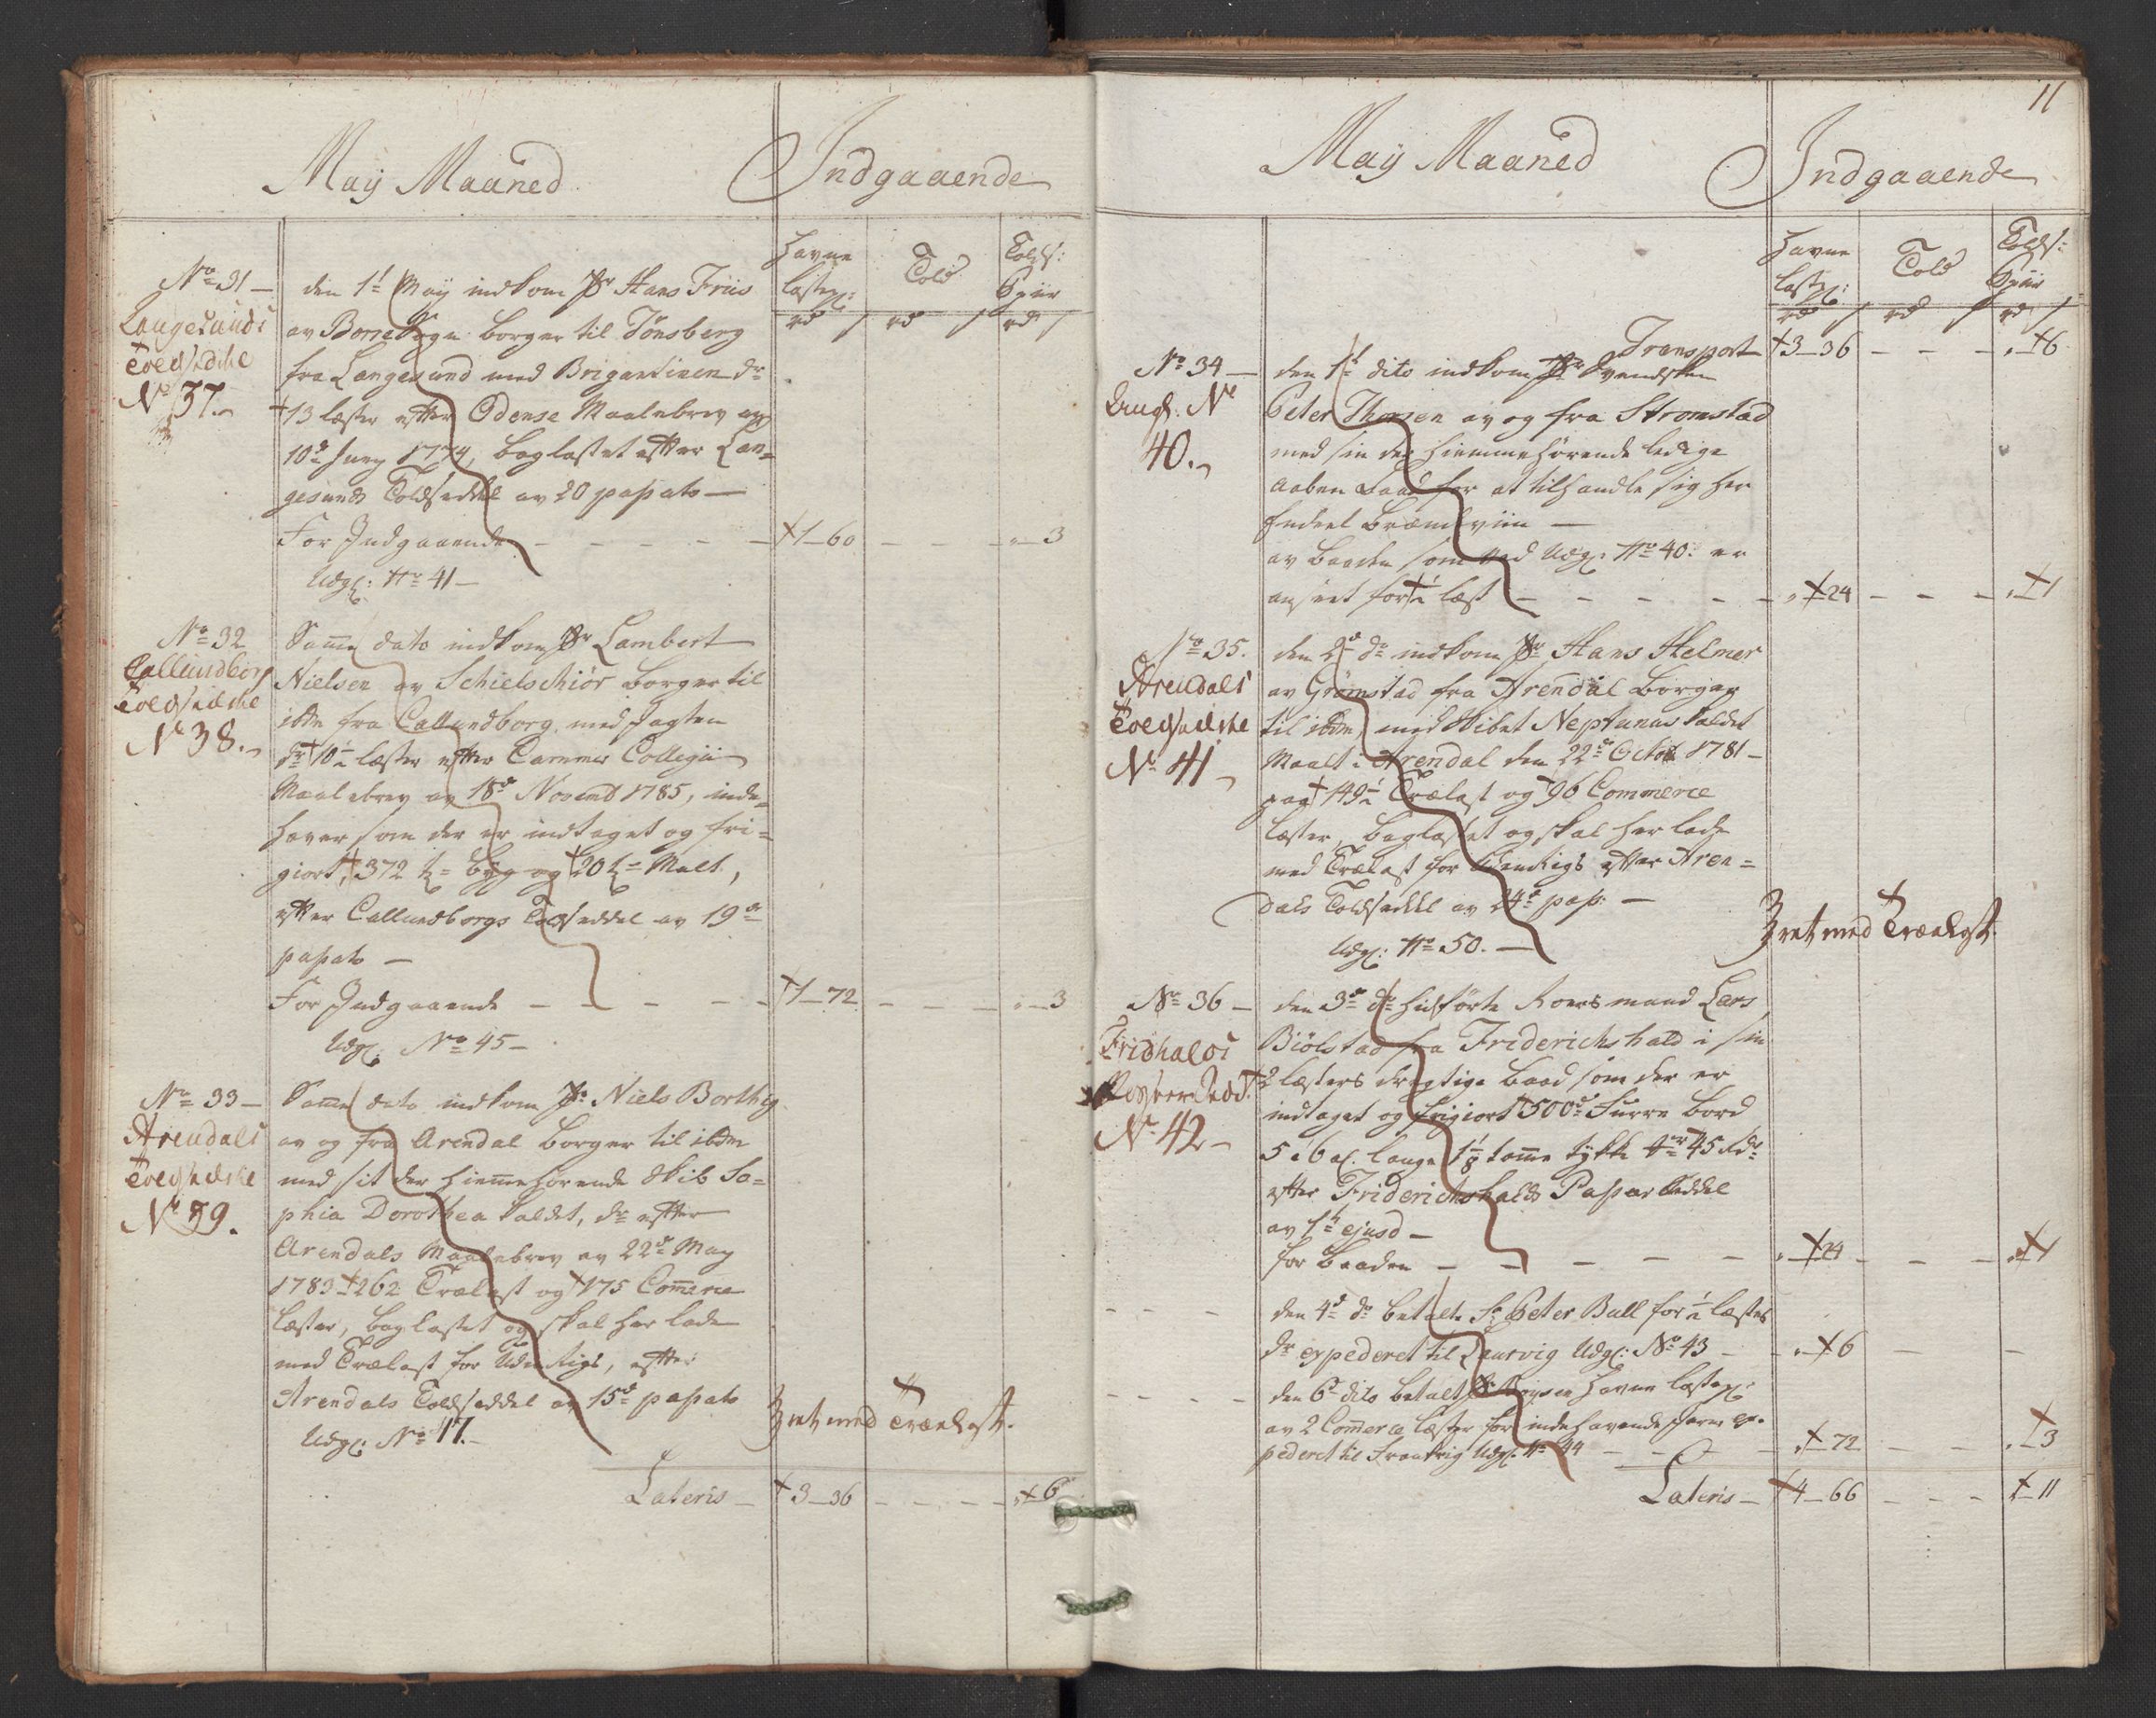 May Maaned
Indgaaende
Havne
lastep:
Told
Tolds:
Spür
rd s rd s rd s
No 31
Langesunds
Toldseddel
No 37.
den 1t May indkom Sr Hans Friis
av Borre Sogn borger til Tönsberg
fra Langesund med Brigantinen dr
13 læster efter Odense Maalebrev av
10de Juny 1774, baglastet efter Lan=
gesunds Toldseddel av 20 passato
For Indgaaende 1-60 3
Udg: No 41
No 32
Callundborg
Toldseddel
No 38.
Samme dato indkom Sr Lambert
Nielsen av Schielschiör borger til
ibdm fra Callundborg med Jagten
dr 10½ læster efter Cammer Collegii
Maalebrev av 18de Novemb 1785, inde=
haver som der er indtaget og fri=
giort, 372 t Byg og 20 t Malt,
efter Callundborgs Toldseddel av 19de
passato
For Indgaaende 1-72 3
Udg: No 45
No 33
Arendals
Toldseddel
No 39.
Samme dato indkom Sr Niels Borthig
av og fra Arendal borger til ibdm
med sit der hiemmehörende Skib So=
phia Dorothea kaldet, dr efter
Arendals Maalebrev av 22de May
1783 262 Trælast og 175 Commerce
læster, baglastet og skal her lade
med Trælast for Udenrigs, efter
Arendals Toldseddel av 15de passato
Udg: No 17.
med Trælast.
Lateris 3-36 6
11
May Maaned
Indgaaende
Havne
lastep:
Told
Tolds:
Spür
rd s rd s rd s
Transport 3-36 6
No 34
Udg: No
40.
den 1t dito indkom Svendsken
Peter Thorsen av og fra Stromstad
med sin der hiemmehörende ledige
aaben Baad for at tilhandle sig her
Endeel Brændeviin
av Baaden som ved Udg: No 40. er
anseet for ½ læst 24 1
No 35.
Arendals
Toldseddel
No 41
den 2de do indkom Sr Hans Helmer
av Grömstad fra Arendal Borger
til ibdm med Skibet Neptunus kaldet
Maalt i Arendal den 22de Octob 1781
149½ Trælast og 96 Commerce
læster, baglastet og skal her lade
med Trælast for Udenrigs efter Aren=
dals Toldseddel av 24de pass:
Udg: No 50.
med Trælast.
No 36
Fridhalds
No 42
den 3de do hidförte Roersmand Lars
Biölstad fra Friderichshald i sin
2 læsters drægtige baad som der er
indtaget og frigiort 500de Furre Bord
5 á 6 al: lange 1⅛ tomme tykke 45 Rdr
efter Friderichshalds Passeer Seddel
av 1t ejusd
for Baaden 24 1
den 4de do betalt Sr Peter Bull for ½ læstes
dr expederet til Laurvig Udg: No 43 6
den 6te dito betalt Sr Boysen havne lastep:
av 2 Commerce læster for indehavende
pederet til Frankrig Udg: No 44 72 3
Lateris 4-66 11